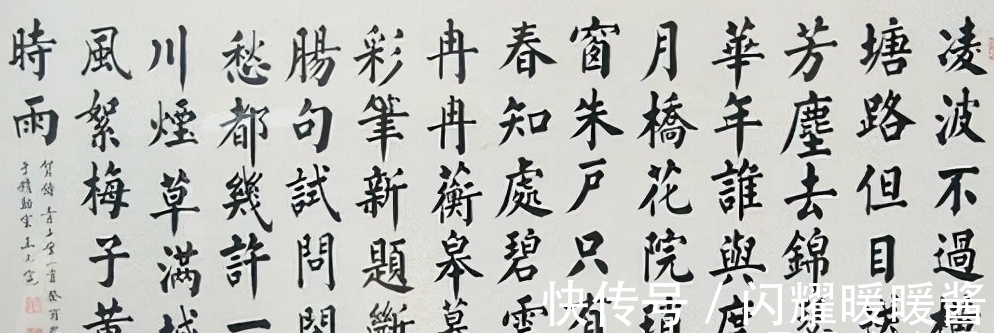 凌波不過
塘路但目
芳塵去錦
華年誰與度
月橋花院
窗朱戶只有
春知處碧雲
冉冉蘅皋暮
彩筆新題斷
腸句試問
愁都幾許一
川煙草滿城
風絮梅子黃
時雨
賀鑄青玉案一首癸酉
快传号 / 闪耀暖暖酱